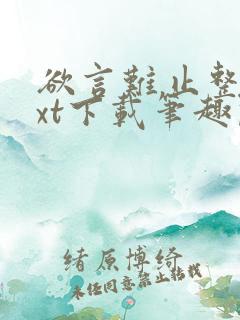 欲言難止整
xt下載筆趣
緒原博綺
未經同意禁止轉載